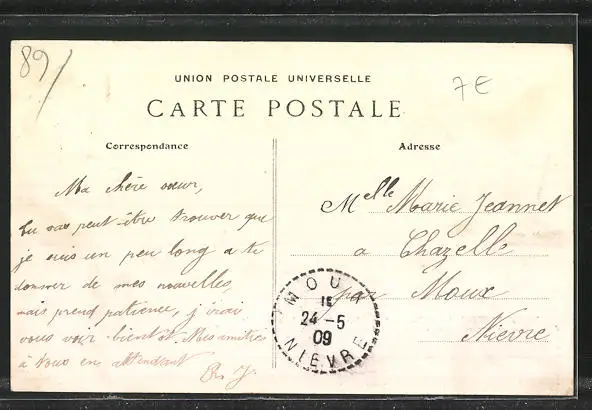 89/
7E
UNION POSTALE UNIVERSELLE
CARTE POSTALE
Correspondance
Ma chère sœur,
tu vas peut-être trouver que
je suis un peu long a te
donner de mes nouvelles,
mais prend patience, j'irai
vous voir bientôt. Mes amitiés
à tous en attendant
Adresse
Melle Marie Jeannet
a Chazelle
par Moux
Nièvre
MOUX
1E
24-5
09
NIEVRE